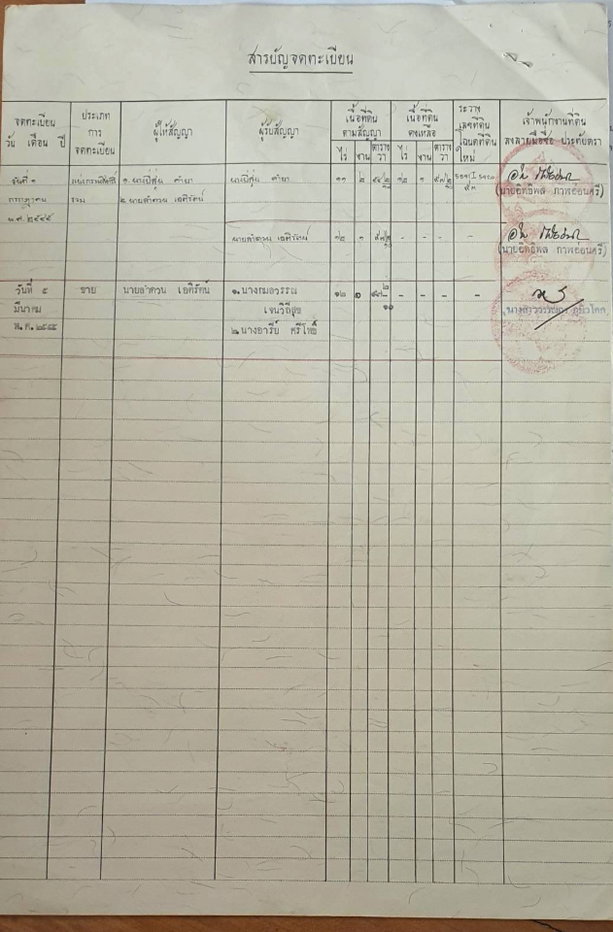 สารบัญจดทะเบียน
จดทะเบียน
วัน เดือน ปี
ประเภท
การ
จดทะเบียน
ผู้ให้สัญญา
ผู้รับสัญญา
เนื้อที่ดิน
ตามสัญญา
ไร่ งาน ตาราง
วา
เนื้อที่ดิน
คงเหลือ
ไร่ งาน ตาราง
วา
ระวาง
เลขที่ดิน
โฉนดที่ดิน
ใหม่
เจ้าพนักงานที่ดิน
ลงลายมือชื่อ ประทับตรา
วันที่ ๑
กรกฎาคม
พ.ศ. ๒๕๔๕
รวม
๒ นายลำดวน เอติรัตน์
(นายอิทธิพล ภาพอ่อนศรี)
นายลำดวน เอติรัตน์
(นายอิทธิพล ภาพอ่อนศรี)
วันที่ ๕
มีนาคม
ขาย
นายลำดวน เอติรัตน์
๑. นางกมลวรรณ
เจนวิถีสุข
๒. นางอารีย์ ศรีโพธิ์
๑๒ ๑